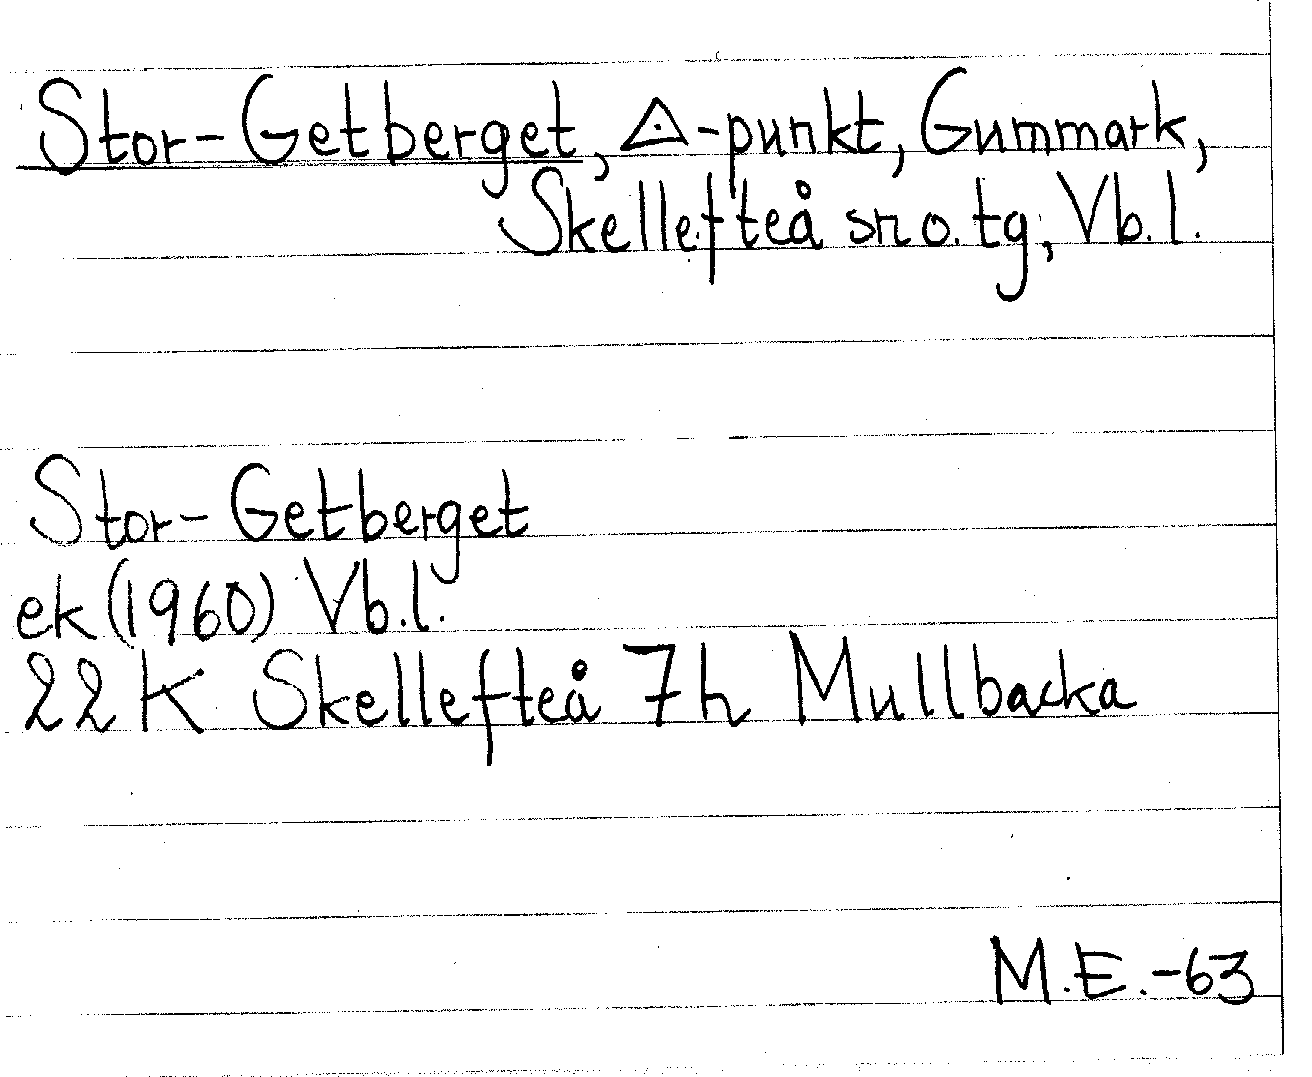 Stor-Getberget, △-punkt, Gummark,
Skellefteå sn o. tg, Vb.l.
Stor-Getberget
ek (1960) Vb.l.
22 K Skellefteå 7h Mullbacka
M.E.-63